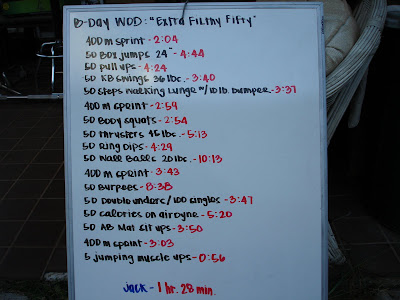 B-DAY WOD: "Extra Filthy Fifty"
400 m sprint - 2:04
50 Box jumps 24" - 4:44
50 pull ups - 4:24
50 KB swings 36 lbs. - 3:40
50 steps walking lunge w/ 10 lb. bumper - 3:37
400 m sprint - 2:59
50 Body squats - 2:54
50 thrusters 45 lbs. - 5:13
50 Ring Dips - 4:29
50 Wall Balls 20 lbs. - 10:13
400 m sprint - 3:43
50 Burpees - 8:38
50 Double unders / 100 singles - 3:47
50 calories on airdyne - 5:20
50 AB Mat sit ups - 3:50
400 m sprint - 3:03
5 jumping muscle ups - 0:56
Jack - 1 hr. 28 min.